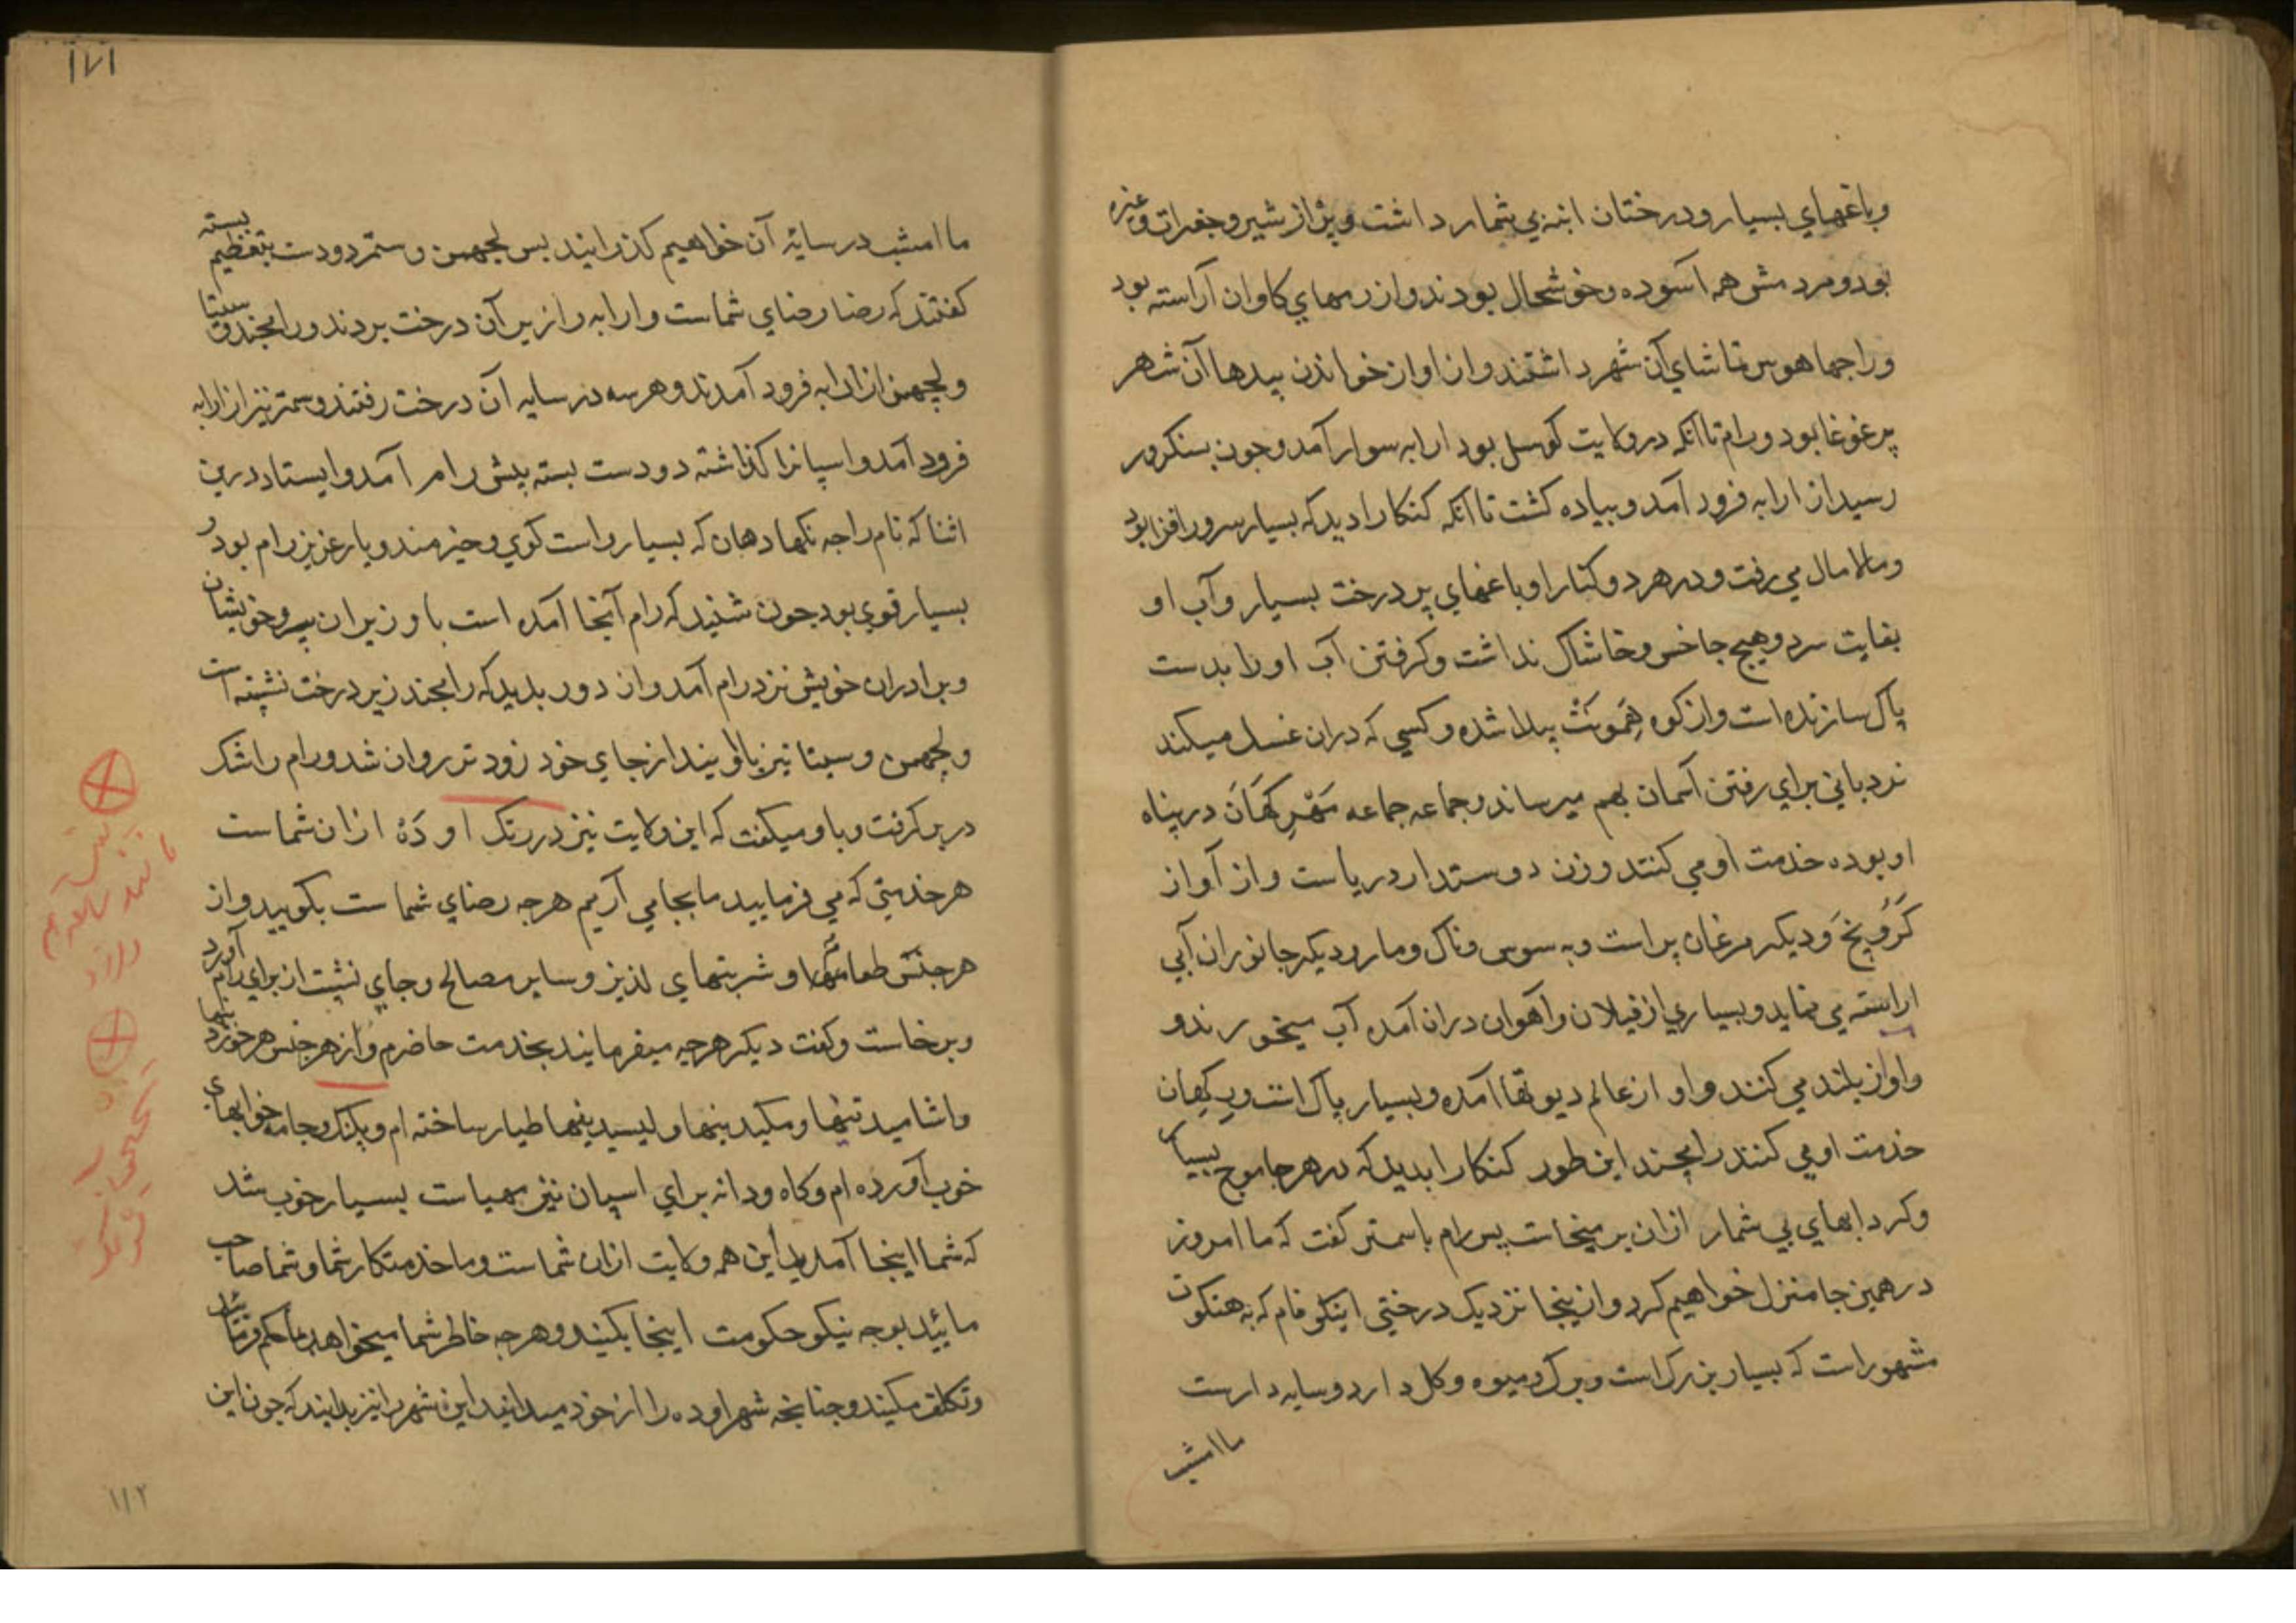 وباغهاي بسيار ودرختان انبه بي شمار داشت و پر از شير و جغرات وغيره
بود و مردمش همه آسوده و خوشحال بودند و از رمهاي كاوان آراسته بود
وراجها هوس تماشاي آن شهر داشتند و از اواز خواندن بيدها آن شهر
پر غوغا بود و رام تا آنكه در ولايت كوسل بود ارابه سوار آمد و جون بسنكرور
رسيد از ارابه فرود آمد و پياده كشت تا آنكه كنكا را ديد كه بسيار سرور افزا بود
ومالامال مي رفت و در هر دو كنار او باغهاي پر درخت بسيار و آب او
بغايت سرد و هيج جا خس و خاشاك نداشت و كرفتن آب او را بدست
پاك سازنده است و از كوه همونت پيدا شده و كسي كه دران غسل ميكند
نردباني براي رفتن آسمان بهم ميرساند و جماعه جماعه مهر كهان در پناه
او بوده خدمت او مي كنند و زن دوستدار درياست و از آواز
كرويخ و ديكر مرغان پر است و به سوس و ناك و مار و ديكر جانوران آبي
اراسته مي نمايد و بسياري از فيلان و آهوان دران آمده آب ميخورند و
واواز بلند مي كنند و او از عالم ديوتها آمده و بسيار پاك است و ركهان
خدمت او مي كنند رامجند اين طور كنكا را بديد كه در هر جا موج بسيار
وكردابهاي بي شمار ازان بر ميخاست پس رام با ستمر كفت كه ما امروز
در همين جا منزل خواهيم كرد و از ينجا نزديك درختي اينكو نام كه به هنكوت
مشهور است كه بسيار بزرك است و برك و ميوه و كل دارد و سايه دارست
ما امشب
١٧١
ما امشب در سايه آن خواهيم كذرانيد پس لجهمن و ستمر دو دست بتعظيم بسته
كفتند كه رضا رضاي شماست و ارابه را زير آن درخت بردند و رامجند و سيتا
ولجهمن از ارابه فرود آمدند و هر سه در سايه آن درخت رفتند و ستمر نيز از ارابه
فرود آمد و اسپانرا كذاشته دو دست بسته پيش رام آمد و ايستاد درين
اثنا كه نام راجه نكهادهان كه بسيار راست كوي و خيرمند و يار عزيز رام بود و
بسيار قوي بود جون شنيد كه رام آنجا آمده است با وزيران پير و خويشان
وبرادران خويش نزد رام آمد و از دور بديد كه رامجند زير درخت نشسته است
ولجهمن و سيتا نيز با اويند از جاي خود زودتر روان شد و رام را تنك
در بر كرفت و باو ميكفت كه اين ولايت نيز در رنك اوده ازان شماست
هر خدمتي كه مي فرماييد ما بجا مي آريم هر جه رضاي شماست بكوييد و از
هر جنس طعامها و شربتهاي لذيز و ساير مصالح و جاي نشست از براي رام آورد
وبرخاست و كفت ديكر هر جيه ميفرمايند بخدمت حاضرم و از هر جنس هر خوردنيها
واشاميدنيها و مكيدنيها و ليسيدنيها طيار ساخته ام و پلنك و جامه خوابهاي
خوب آورده ام و كاه و دانه براي اسپان نيز مهياست بسيار خوب شد
كه شما اينجا آمديد اين همه ولايت ازان شماست و ما خدمتكار شما و شما صاحب
مائيد بوجه نيكو حكومت اينجا بكنيد و هر جه خاطر شما ميخواهد بما حكم فرمائيد
وتكلف مكنيد و جنانجه شهر اوده را از خود ميدانيد اين شهر را نيز بدانيد كه جون اين
١١٢